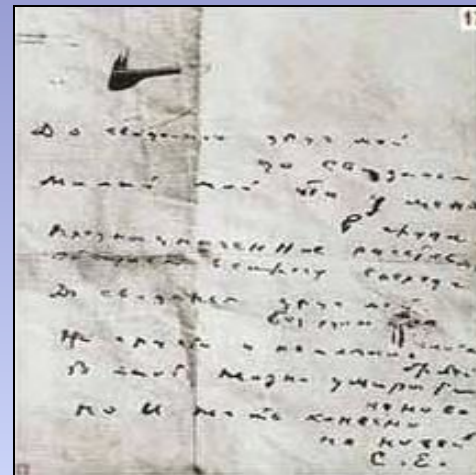 До свиданья друг мой
до свиданья
милый мой ты у меня
в груди
Предназначенное расставанье
обещает встречу впереди
До свиданья друг мой
без руки
Не грусти и не печаль
бровей
В этой жизни умирать
не ново
но и жить конечно
не новей
С. Е.